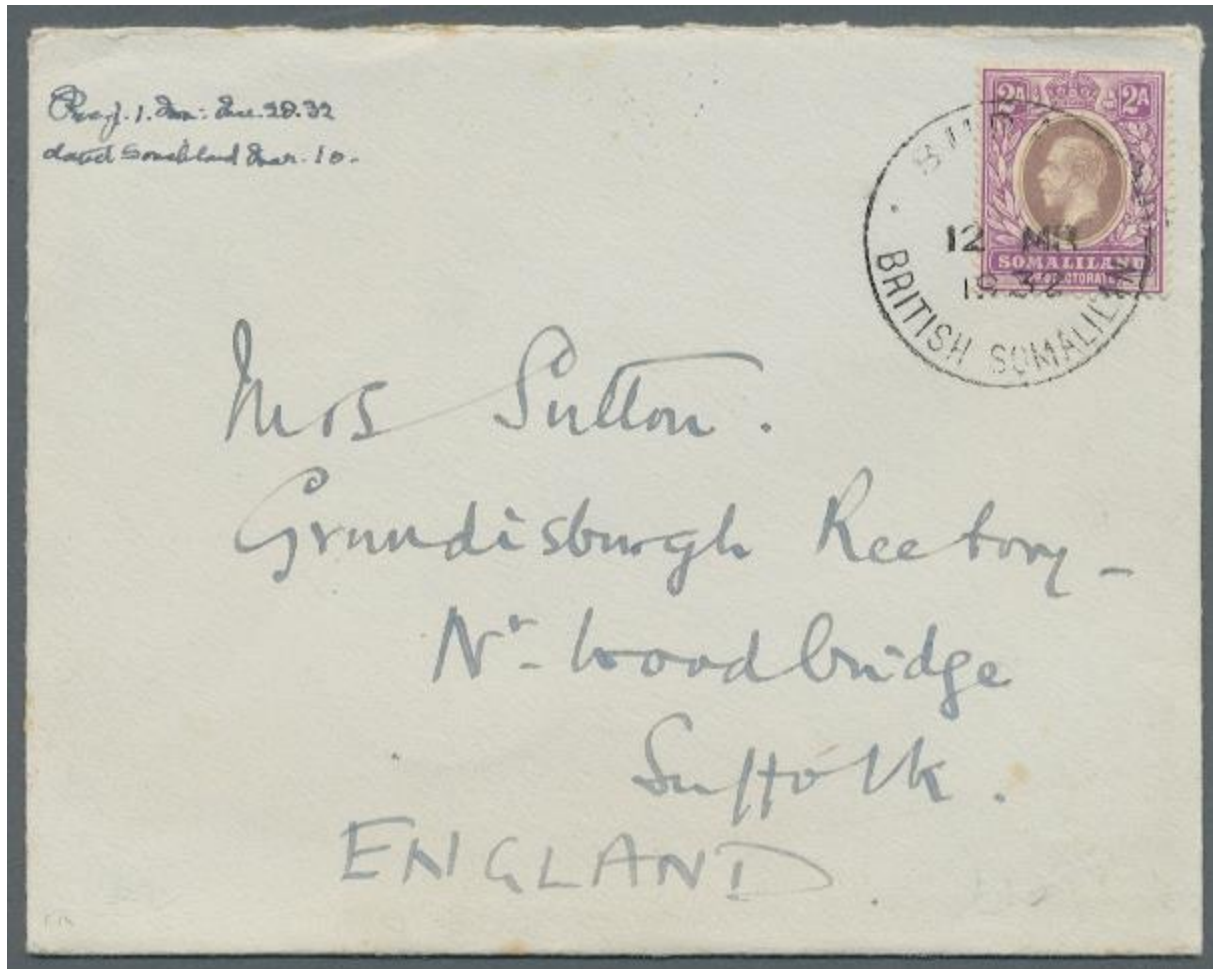 dated Somaliland Mar. 10-
2A 2A
SOMALILAND
PROTECTORATE
12 MR
1932
BRITISH SOMALILAND
Mrs Sutton.
Grundisburgh Rectory -
Nr - Woodbridge
Suffolk.
ENGLAND.